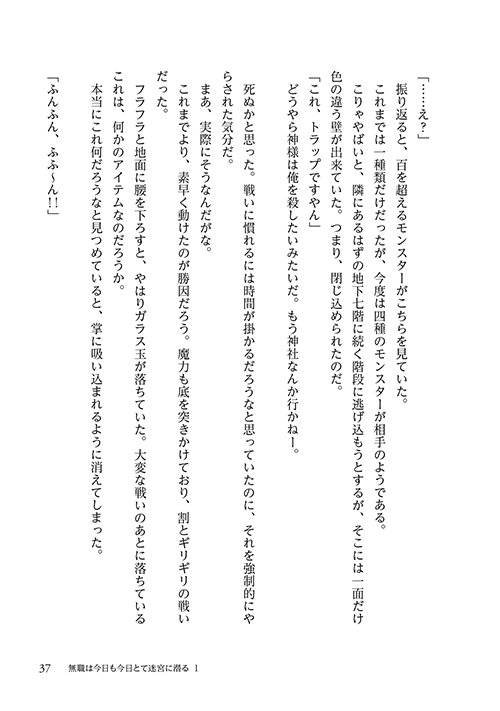 「……え？」
振り返ると、百を超えるモンスターがこちらを見ていた。
これまでは一種類だけだったが、今度は四種のモンスターが相手のようである。
こりゃやばいと、隣にあるはずの地下七階に続く階段に逃げ込もうとするが、そこには一面だけ
色の違う壁が出来ていた。つまり、閉じ込められたのだ。
「これ、トラップですやん」
どうやら神様は俺を殺したいみたいだ。もう神社なんか行かねー。
死ぬかと思った。戦いに慣れるには時間が掛かるだろうなと思っていたのに、それを強制的にや
らされた気分だ。
まあ、実際にそうなんだがな。
これまでより、素早く動けたのが勝因だろう。魔力も底を突きかけており、割とギリギリの戦い
だった。
フラフラと地面に腰を下ろすと、やはりガラス玉が落ちていた。大変な戦いのあとに落ちている
これは、何かのアイテムなのだろうか。
本当にこれ何だろうなと見つめていると、掌に吸い込まれるように消えてしまった。
「ふんふん、ふふ〜ん!!」
37 無職は今日も今日とて迷宮に潜る 1